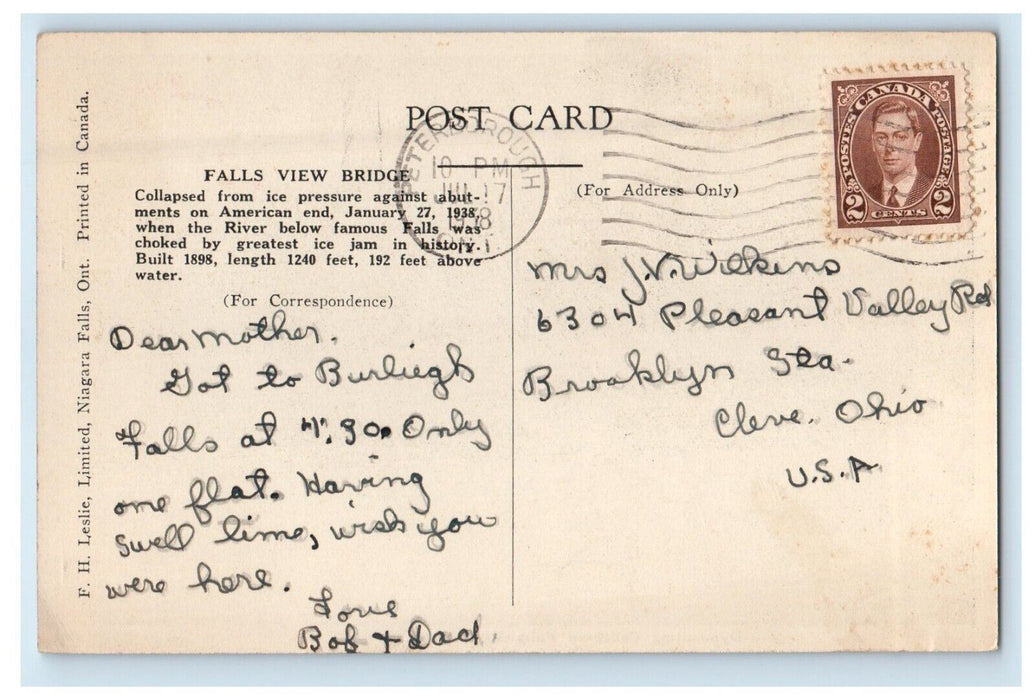 POST CARD
PETERBOROUGH
10 PM
JUL 17
1938
ONT.
CANADA
POSTES POSTAGE
2 CENTS 2
FALLS VIEW BRIDGE
Collapsed from ice pressure against abut-
ments on American end, January 27, 1938,
when the River below famous Falls was
choked by greatest ice jam in history.
Built 1898, length 1240 feet, 192 feet above
water.
(For Correspondence)
Dear Mother.
Got to Burliegh
Falls at 4:30. Only
one flat. Having
swell time, wish you
were here.
Love
Bob + Dad.
(For Address Only)
Mrs J.V. Wilkins
6304 Pleasant Valley Rd
Brooklyn Sta.
Cleve. Ohio
U.S.A.
F. H. Leslie, Limited, Niagara Falls, Ont. Printed in Canada.